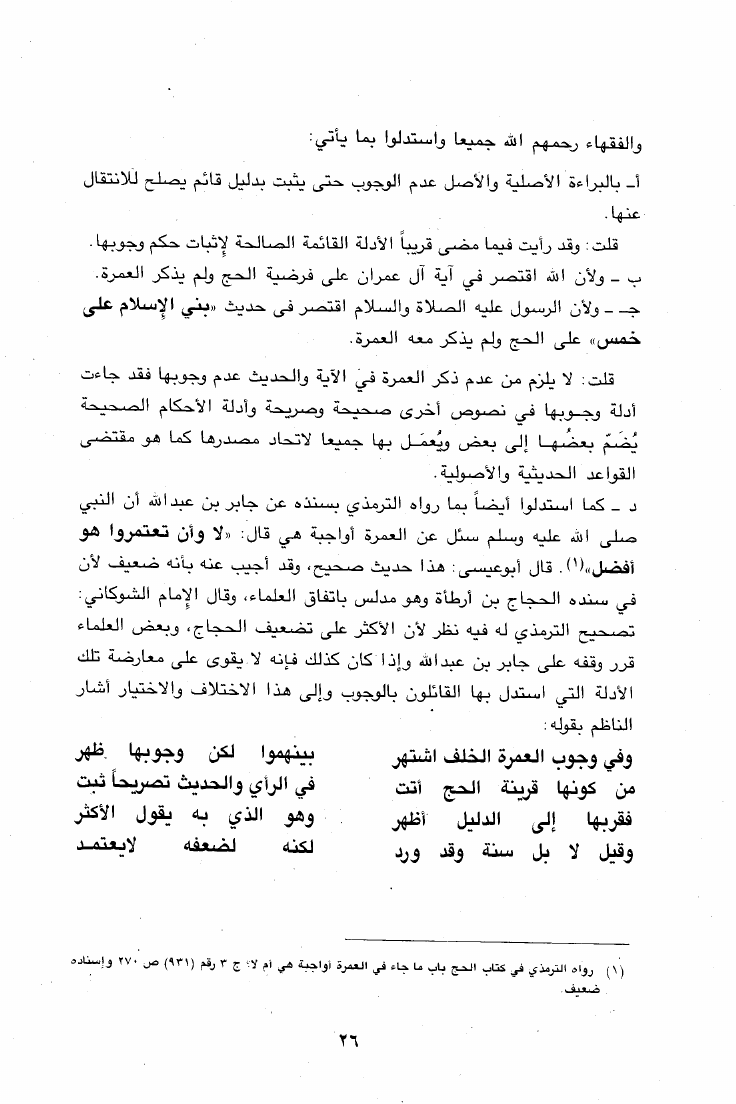 والفقهاء رحمهم الله جميعا واستدلوا بما يأتي:
أ‌ـ بالبراءة الأصلية والأصل عدم الوجوب حتى يثبت بدليل قائم يصلح للانتقال
عنها.
قلت: وقد رأيت فيما مضى قريباً الأدلة القائمة الصالحة لإثبات حكم وجوبها.
ب ـ ولأن الله اقتصر في آية آل عمران على فرضية الحج ولم يذكر العمرة.
جـ ـ ولأن الرسول عليه الصلاة والسلام اقتصر في حديث «بني الإسلام على
خمس» على الحج ولم يذكر معه العمرة.
قلت: لا يلزم من عدم ذكر العمرة في الآية والحديث عدم وجوبها فقد جاءت
أدلة وجـوبها في نصوص أخرى صحيحة وصريحة وأدلة الأحكام الصحيحة
يُضَمّ بعضُهـا إلى بعض ويُعمَـل بها جميعا لاتحاد مصدرها كما هو مقتضى
القواعد الحديثية والأصولية.
د ـ كما استدلوا أيضاً بما رواه الترمذي بسنده عن جابر بن عبدالله أن النبي
صلى الله عليه وسلم سئل عن العمرة أواجبة هي قال: «لا وأن تعتمروا هو
أفضل»(١). قال أبوعيسى: هذا حديث صحيح، وقد أجيب عنه بأنه ضعيف لأن
في سنده الحجاج بن أرطأة وهو مدلس باتفاق العلماء، وقال الإمام الشوكاني:
تصحيح الترمذي له فيه نظر لأن الأكثر على تضعيف الحجاج، وبعض العلماء
قرر وقفه على جابر بن عبدالله وإذا كان كذلك فإنه لا يقوى على معارضة تلك
الأدلة التي استدل بها القائلون بالوجوب وإلى هذا الاختلاف والاختيار أشار
الناظم بقوله:
وفي وجوب العمرة الخلف اشتهر بينهموا لكن وجوبها ظهر
من كونها قرينة الحج أتت في الرأي والحديث تصريحاً ثبت
فقربها إلى الدليل أظهر وهو الذي به يقول الأكثر
وقيل لا بل سنة وقد ورد لكنه لضعفه لايعتمـد
(١) رواه الترمذي في كتاب الحج باب ما جاء في العمرة أواجبة هي أم لا؟ ج ٣ رقم (٩٣١) ص ٢٧٠ وإسناده
ضعيف.
٢٦